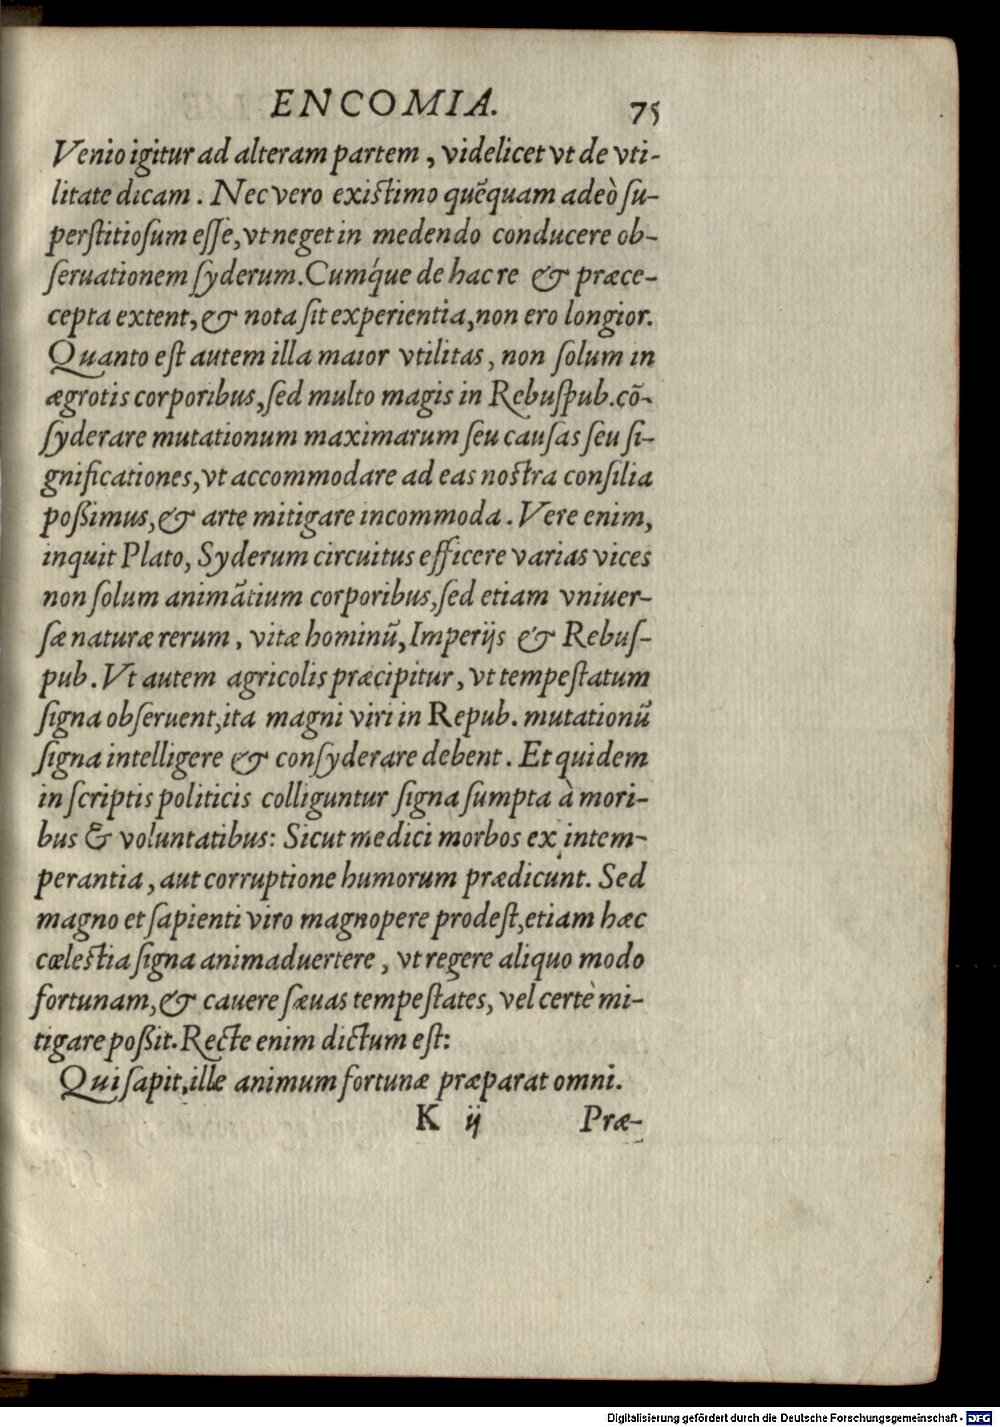 ENCOMIA. 75
Venio igitur ad alteram partem, videlicet vt de vti-
litate dicam. Nec vero existimo quẽquam adeò ſu-
perſtitioſum eſſe, vt neget in medendo conducere ob-
ſeruationem ſyderum. Cumq́ue de hac re & præce-
cepta extent, & nota ſit experientia, non ero longior.
Quanto eſt autem illa maior vtilitas, non ſolum in
ægrotis corporibus, ſed multo magis in Rebuſpub. cõ-
ſyderare mutationum maximarum ſeu cauſas ſeu ſi-
gnificationes, vt accommodare ad eas noſtra conſilia
poßimus, & arte mitigare incommoda. Vere enim,
inquit Plato, Syderum circuitus efficere varias vices
non ſolum animãtium corporibus, ſed etiam vniuer-
ſæ naturæ rerum, vitæ hominũ, Imperijs & Rebuſ-
pub. Vt autem agricolis præcipitur, vt tempeſtatum
ſigna obſeruent, ita magni viri in Repub. mutationũ
ſigna intelligere & conſyderare debent. Et quidem
in ſcriptis politicis colliguntur ſigna ſumpta à mori-
bus & voluntatibus: Sicut medici morbos ex intem-
perantia, aut corruptione humorum prædicunt. Sed
magno et ſapienti viro magnopere prodeſt, etiam hæc
cœleſtia ſigna animaduertere, vt regere aliquo modo
fortunam, & cauere ſæuas tempeſtates, vel certè mi-
tigare poßit. Recte enim dictum eſt:
Qui ſapit, ille animum fortunæ præparat omni.
K ij Præ-
Digitalisierung gefördert durch die Deutsche Forschungsgemeinschaft - DFG